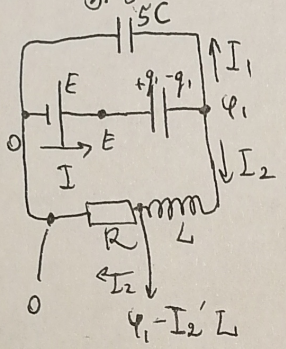 5C
I₁
E
+q₁ -q₁
φ₁
0
E
I
I₂
R
L
I₂
0
φ₁ - I₂' L